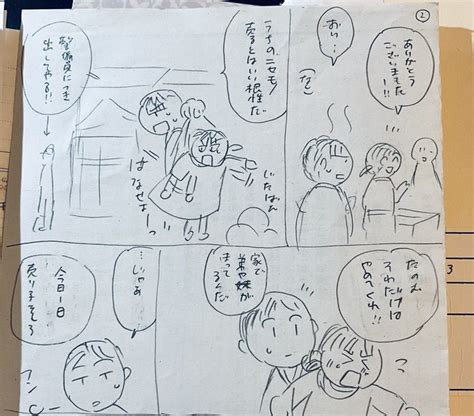 ②
ありがとう
ございました
ー!!
おい…
うちのニセモノ
売るとはいい根性だ
警備員につき
出してやる!!
いたいたい
はなせよっ
たのむ
それだけは
やめてくれ!!
家で
弟や妹が
まってるんだ
…じゃあ
今日1日
売り子をしろ
3